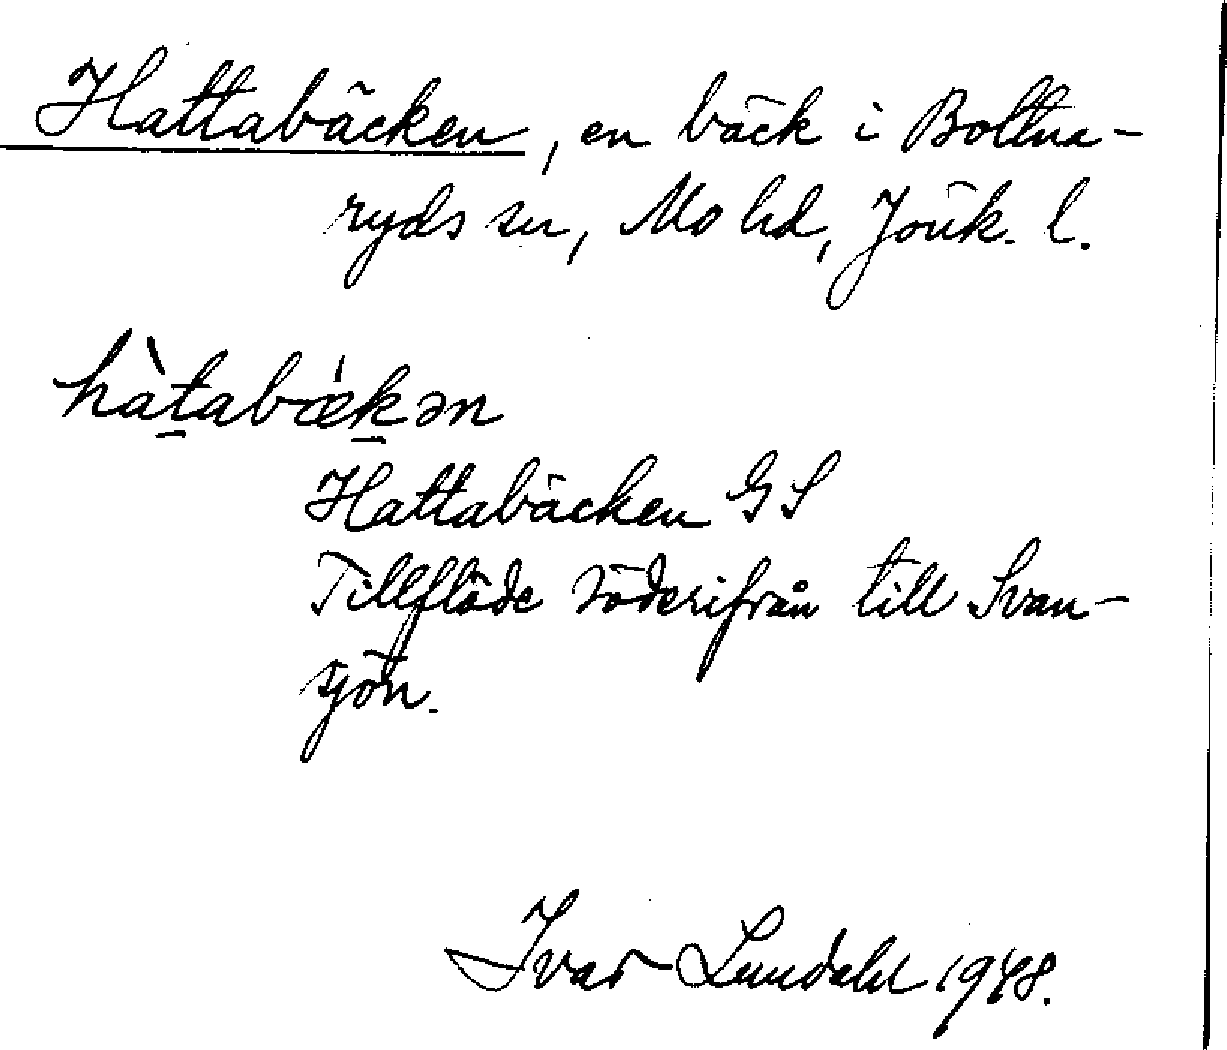 Hattabäcken, en bäck i Bottna-
ryds sn, Mo hd, Jönk. l.
hàt̠abǽk̠ən
Hattabäcken GS
Tillflöde söderifrån till Svan-
sjön.
Ivar Lundahl 1948.